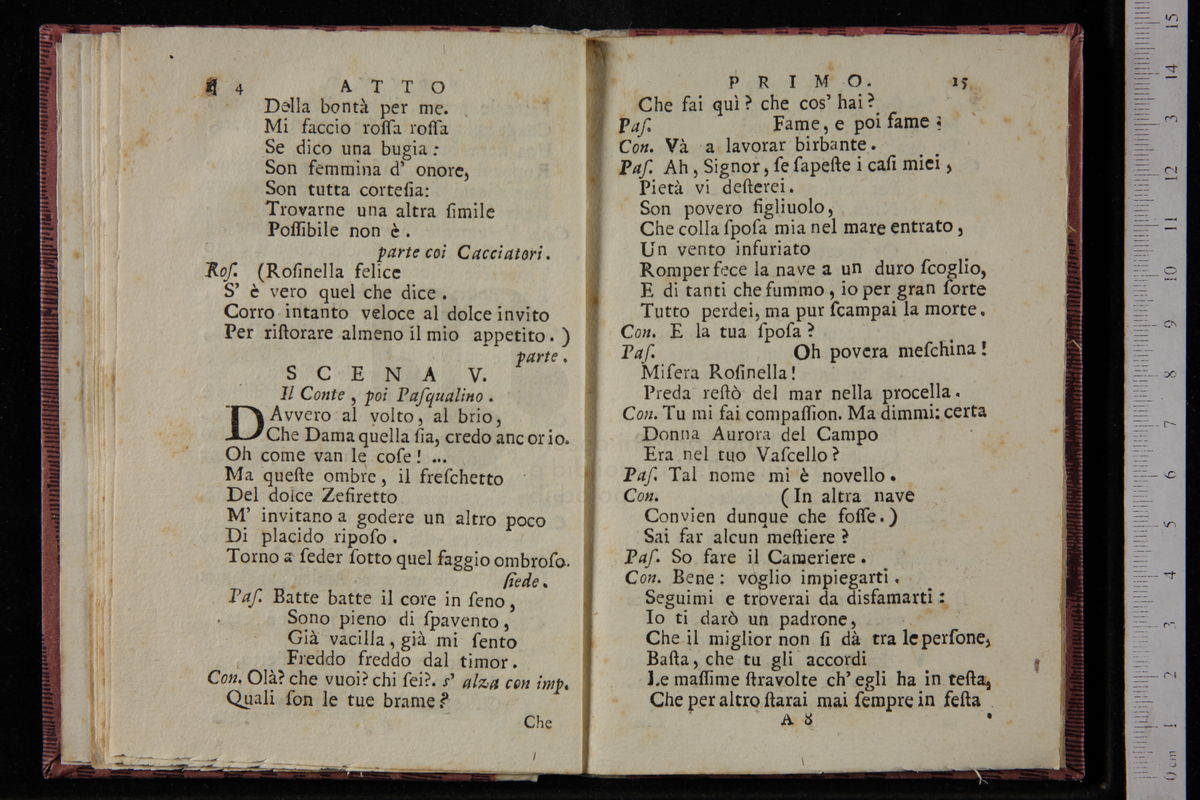 14 ATTO
Della bontà per me.
Mi faccio roſſa roſſa
Se dico una bugia:
Son femmina d' onore,
Son tutta corteſia:
Trovarne una altra ſimile
Poſſibile non è.
parte coi Cacciatori.
Roſ. (Roſinella felice
S' è vero quel che dice.
Corro intanto veloce al dolce invito
Per riſtorare almeno il mio appetito.)
parte.
SCENA V.
Il Conte, poi Paſqualino.
DAvvero al volto, al brio,
Che Dama quella ſia, credo anc or io.
Oh come van le coſe! ...
Ma queſte ombre, il freſchetto
Del dolce Zefiretto
M' invitano a godere un altro poco
Di placido ripoſo.
Torno a ſeder ſotto quel faggio ombroſo.
ſiede.
Paſ. Batte batte il core in ſeno,
Sono pieno di ſpavento,
Già vacilla, già mi ſento
Freddo freddo dal timor.
Con. Olà? che vuoi? chi ſei?. s' alza con imp.
Quali ſon le tue brame?
Che
PRIMO. 15
Che fai quì? che cos' hai?
Paſ. Fame, e poi fame:
Con. Và a lavorar birbante.
Paſ. Ah, Signor, ſe ſapeſte i caſi miei,
Pietà vi deſterei.
Son povero figliuolo,
Che colla ſpoſa mia nel mare entrato,
Un vento infuriato
Romper fece la nave a un duro ſcoglio,
E di tanti che fummo, io per gran ſorte
Tutto perdei, ma pur ſcampai la morte.
Con. E la tua ſpoſa?
Paſ. Oh povera meſchina!
Miſera Roſinella!
Preda reſtò del mar nella procella.
Con. Tu mi fai compaſſion. Ma dimmi: certa
Donna Aurora del Campo
Era nel tuo Vaſcello?
Paſ. Tal nome mi è novello.
Con. (In altra nave
Convien dunque che foſſe.)
Sai far alcun meſtiere?
Paſ. So fare il Cameriere.
Con. Bene: voglio impiegarti.
Seguimi e troverai da disfamarti:
Io ti darò un padrone,
Che il miglior non ſi dà tra le perſone,
Baſta, che tu gli accordi
Le maſſime ſtravolte ch' egli ha in teſta,
Che per altro ſtarai mai ſempre in feſta
A 8
0 cm 1 2 3 4 5 6 7 8 9 10 11 12 3 14 15